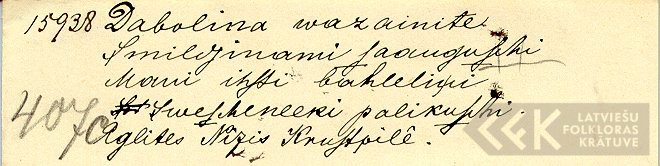 15938 Dabolina wazainite
Smildzinami saauguschi
Mani ihsti bahlelini
Sweschneeki palikuschi.
4070
Aglites Nizis Krustpilê.
LATVIEŠU
FOLKLORAS
KRĀTUVE